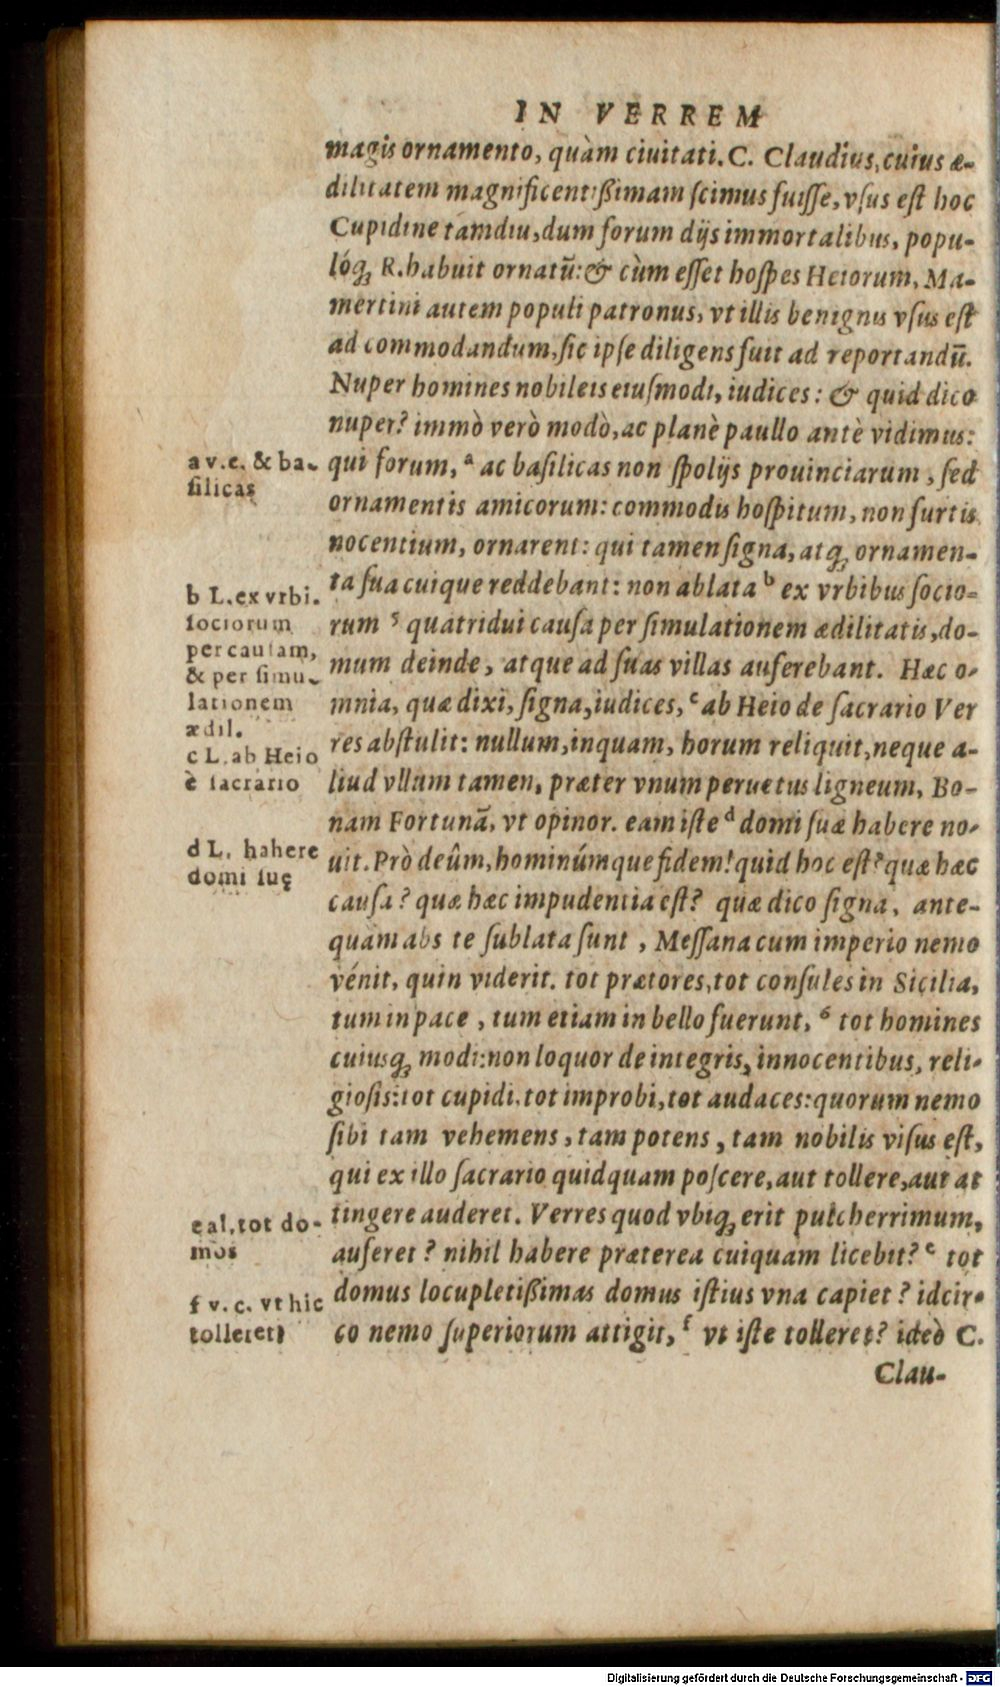 IN VERREM
magis ornamento, quàm ciuitati. C. Claudius, cuius æ-
dilitatem magnificentißimam ſcimus fuiſſe, vſus eſt hoc
Cupidine tamdiu, dum forum dijs immortalibus, popu-
lóq́ꝫ R. habuit ornatū: & cùm eſſet hoſpes Heiorum, Ma-
mertini autem populi patronus, vt illis benignus vſus eſt
ad commodandum, ſic ipſe diligens fuit ad reportandū.
Nuper homines nobileis eiuſmodi, iudices: & quid dico
nuper? immò verò modò, ac planè paullo antè vidimus:
qui forum, ᵃ ac baſilicas non ſpolijs prouinciarum, ſed
ornamentis amicorum: commodis hoſpitum, non furtis
nocentium, ornarent: qui tamen ſigna, atqꝫ ornamen-
ta ſua cuique reddebant: non ablata ᵇ ex vrbibus ſocio-
rum ⁵ quatridui cauſa per ſimulationem ædilitatis, do-
mum deinde, atque ad ſuas villas auferebant. Hæc o-
mnia, quæ dixi, ſigna, iudices, ᶜ ab Heio de ſacrario Ver
res abſtulit: nullum, inquam, horum reliquit, neque a-
liud vllum tamen, præter vnum peruetus ligneum, Bo-
nam Fortunā, vt opinor. eam iſte ᵈ domi ſuæ habere no-
uit. Prò deûm, hominúmque fidem! quid hoc eſt? quæ hæc
cauſa? quæ hæc impudentia eſt? quæ dico ſigna, ante-
quàm abs te ſublata ſunt, Meſſana cum imperio nemo
vénit, quin viderit. tot prætores, tot conſules in Sicilia,
tum in pace, tum etiam in bello fuerunt, ⁶ tot homines
cuiusqꝫ modi: non loquor de integris, innocentibus, reli-
gioſis: tot cupidi, tot improbi, tot audaces: quorum nemo
ſibi tam vehemens, tam potens, tam nobilis viſus eſt,
qui ex illo ſacrario quidquam poſcere, aut tollere, aut at
tingere auderet. Verres quod vbiqꝫ erit pulcherrimum,
auferet? nihil habere præterea cuiquam licebit? ᵉ tot
domus locupletißimas domus iſtius vna capiet? idcir-
co nemo ſuperiorum attigit, ᶠ vt iſte tolleret? ideò C.
Clau-
a v.c. & ba-
ſilicas
b L. ex vrbi.
ſociorum
per cauſam,
& per ſimu-
lationem
ædil.
c L. ab Heio
è ſacrario
d L. habere
domi ſuę
e al. tot do-
mos
f v.c. vt hic
tolleret
Digitalisierung gefördert durch die Deutsche Forschungsgemeinschaft - DFG